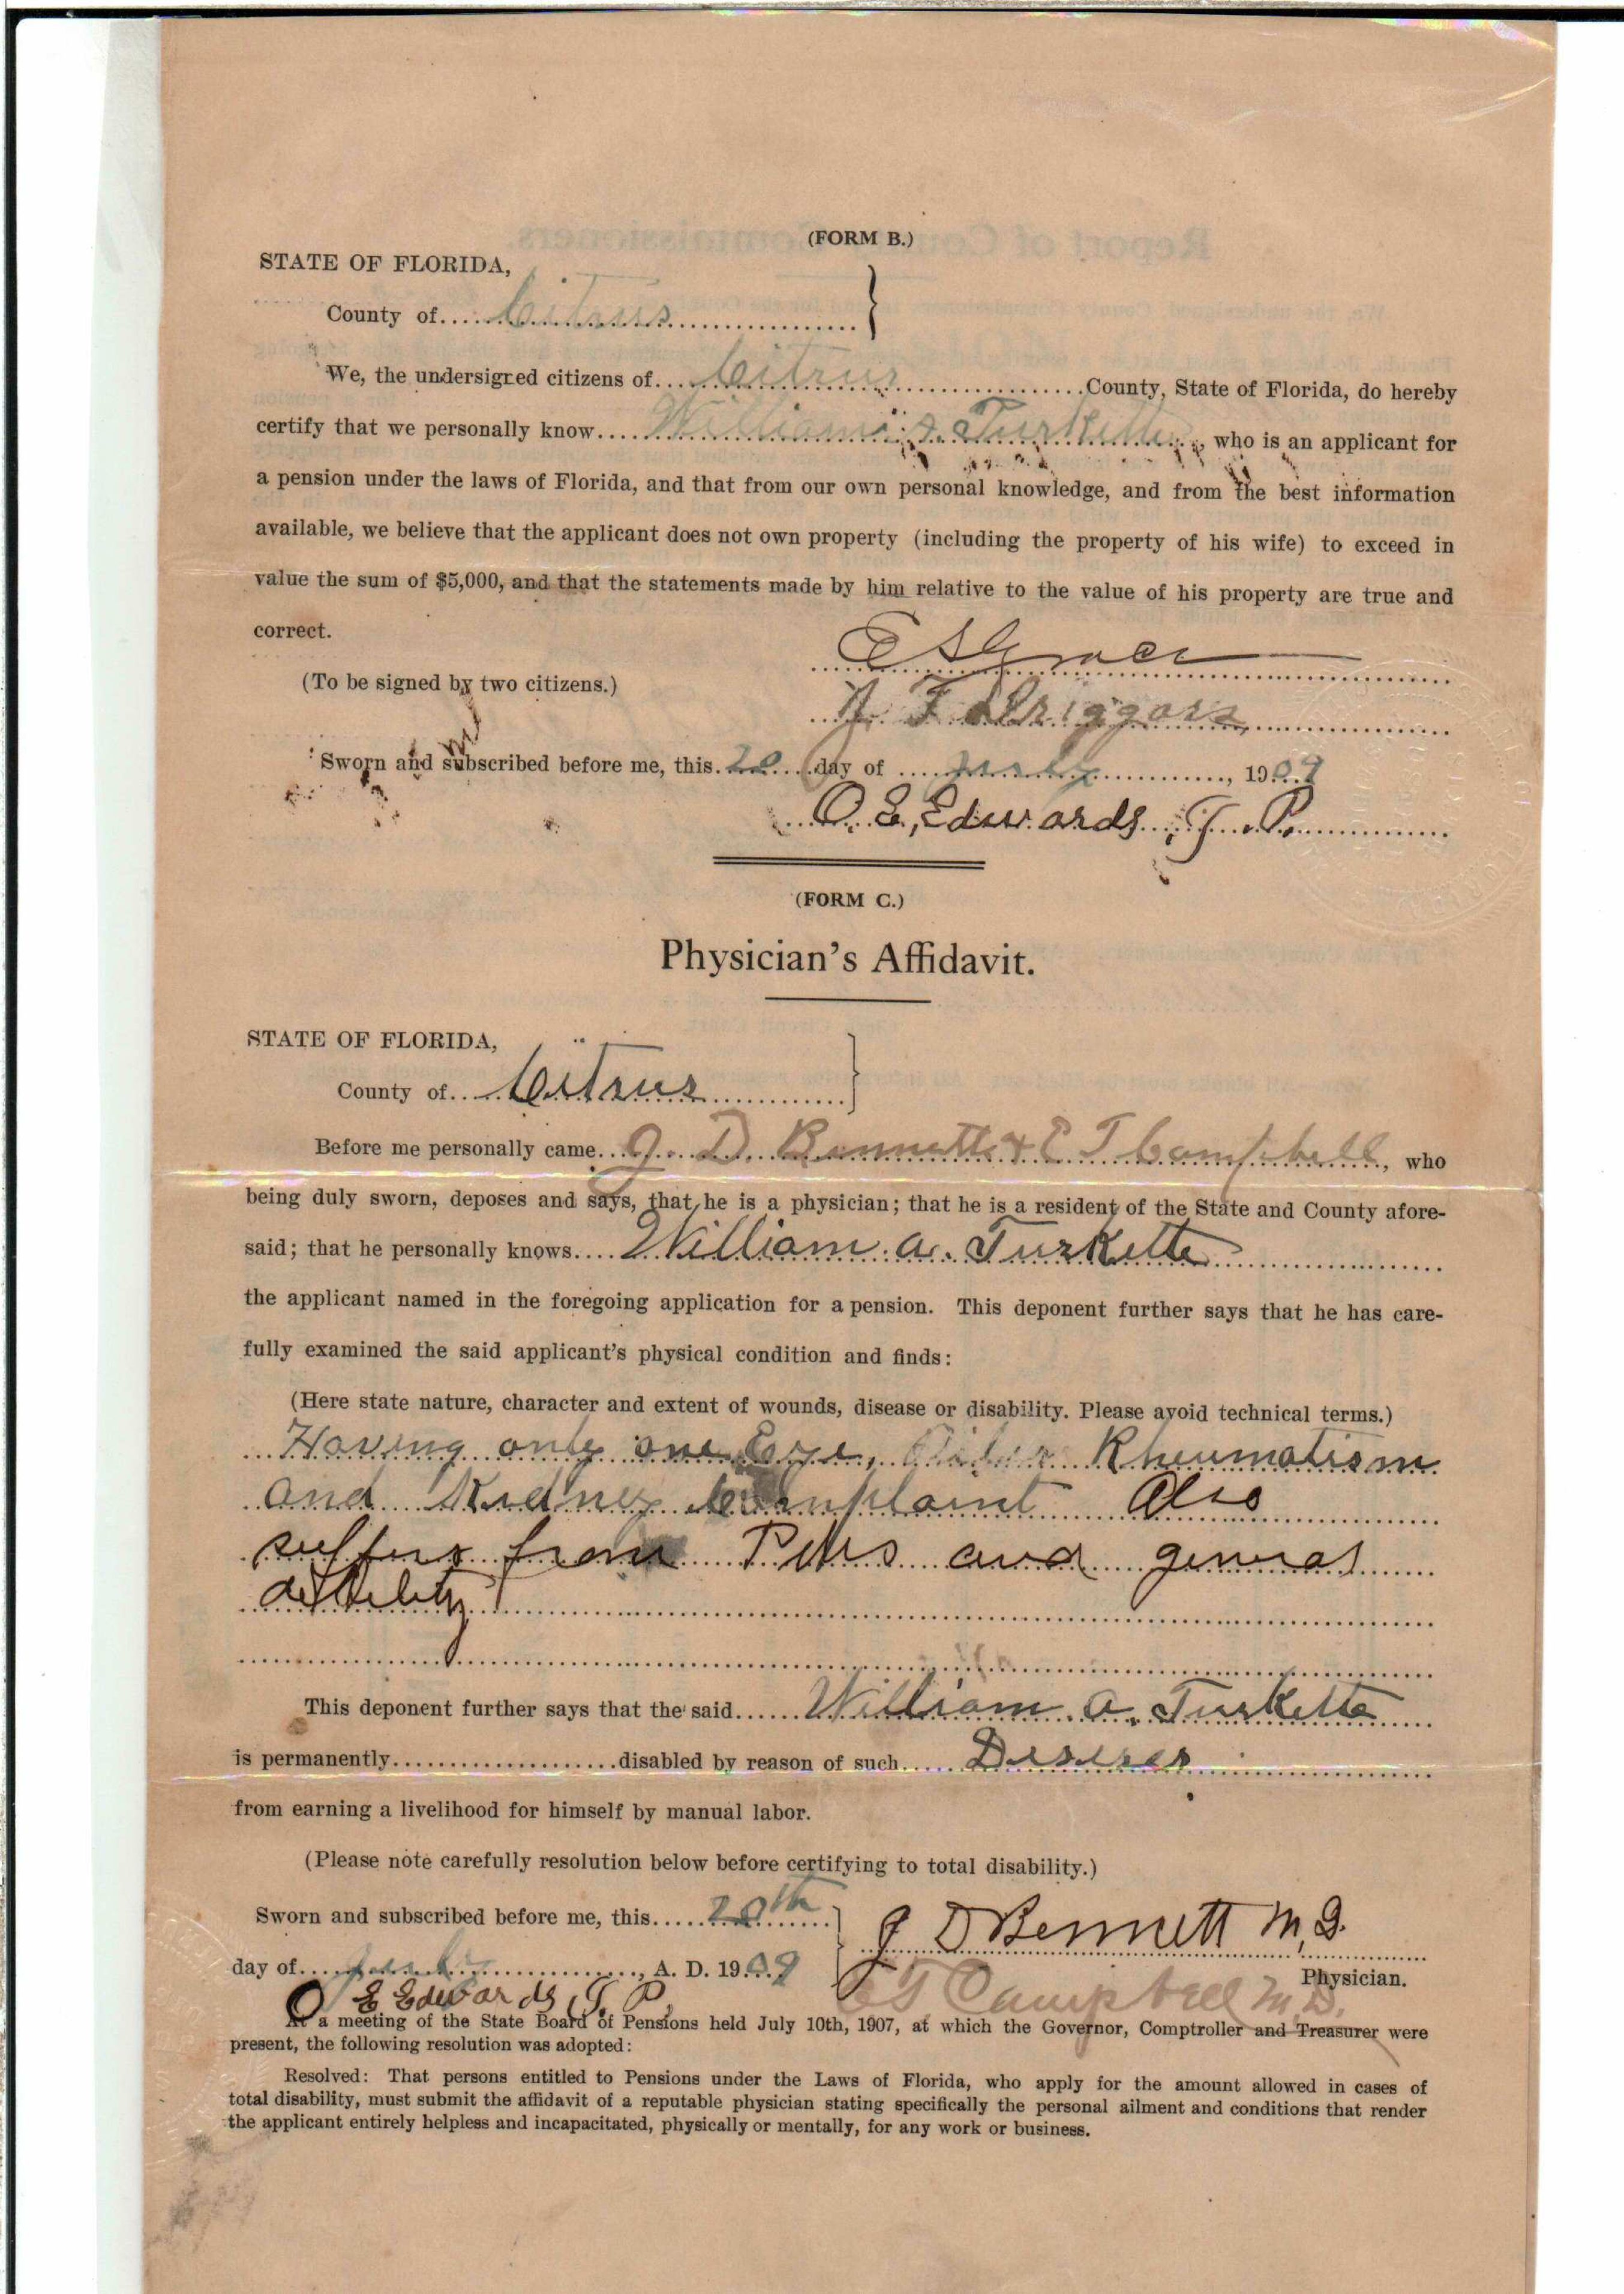 (FORM B.)
STATE OF FLORIDA,
County of Citrus
We, the undersigned citizens of Citrus County, State of Florida, do hereby
certify that we personally know William a. Turkette, who is an applicant for
a pension under the laws of Florida, and that from our own personal knowledge, and from the best information
available, we believe that the applicant does not own property (including the property of his wife) to exceed in
value the sum of $5,000, and that the statements made by him relative to the value of his property are true and
correct.
(To be signed by two citizens.)
Sworn and subscribed before me, this 20 day of July, 1909
O. E. Edwards, J. P.
(FORM C.)
Physician's Affidavit.
STATE OF FLORIDA,
County of Citrus
Before me personally came J. D. Bennett & E T Campbell, who
being duly sworn, deposes and says, that he is a physician; that he is a resident of the State and County afore-
said; that he personally knows William. a. Turkette
the applicant named in the foregoing application for a pension. This deponent further says that he has care-
fully examined the said applicant's physical condition and finds:
(Here state nature, character and extent of wounds, disease or disability. Please avoid technical terms.)
Having only one Eye, Rheumatism
and Kidney Complaint Also
suffers from Piles and general
debility
This deponent further says that the said William. a. Turkette
is permanently disabled by reason of such
from earning a livelihood for himself by manual labor.
(Please note carefully resolution below before certifying to total disability.)
Sworn and subscribed before me, this 20th
J D Bennett M.D.
day of July, A. D. 1909
Physician.
O E Edwards J. P.
E T Campbell M.D.
At a meeting of the State Board of Pensions held July 10th, 1907, at which the Governor, Comptroller and Treasurer were
present, the following resolution was adopted:
Resolved: That persons entitled to Pensions under the Laws of Florida, who apply for the amount allowed in cases of
total disability, must submit the affidavit of a reputable physician stating specifically the personal ailment and conditions that render
the applicant entirely helpless and incapacitated, physically or mentally, for any work or business.